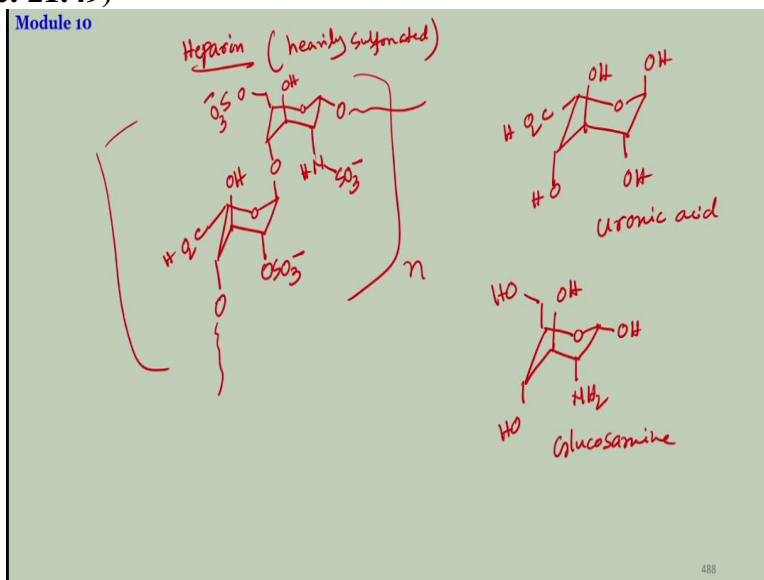 c. 21:49)
Module 10
Heparin (heavily sulfonated)
⁻O₃SO
OH
O
O
O
HN SO₃⁻
OH
O
HO₂C
OSO₃⁻
O
n
OH
OH
O
HO₂C
HO
OH
Uronic acid
HO
OH
O
OH
NH₂
HO
Glucosamine
488